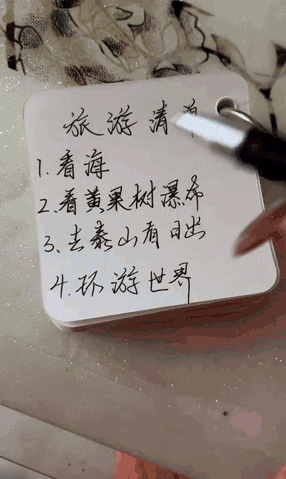 旅游清单
1.看海
2.看黄果树瀑布
3、去泰山看日出
4.环游世界